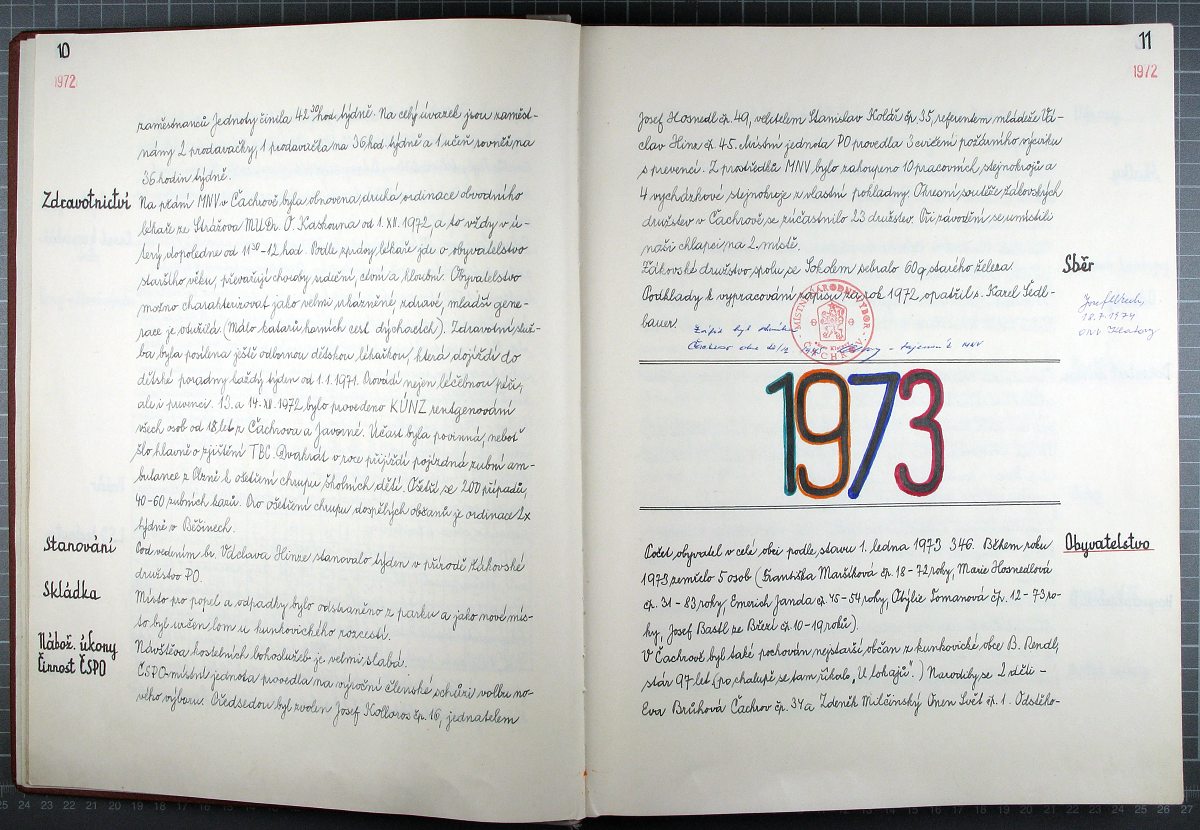 10
1972
zaměstnanců Jednoty činila 42 30 hod. týdně. Na celý úvazek jsou zaměst-
nány 2 prodavačky, 1 prodavačka na 36 hod. týdně a 1 učeň rovněž na
36 hodin týdně.
Zdravotnictví
Na přání MNV v Čachrově byla obnovena druhá ordinace obvodního
lékaře ze Strážova MUDr. O. Kastowna od 1. XII. 1972, a to vždy v ú-
terý dopoledne od 11 30 - 12 hod. Podle zprávy lékaře jde o obyvatelstvo
staršího věku, převažují choroby srdeční, cévní a kloubní. Obyvatelstvo
možno charakterizovat jako velmi ukázněné zdravé, mladší gene-
race je otužilá (Málo katarů horních cest dýchacích). Zdravotní služ-
ba byla posílena ještě odbornou dětskou lékařkou, která dojíždí do
dětské poradny každý týden od 1.1.1971. Provádí nejen léčebnou péči,
ale i prevenci. 13. a 14. XII. 1972 bylo provedeno KÚNZ rentgenování
všech osob od 18 let z Čachrova a Javorné. Účast byla povinná, neboť
šlo hlavně o zjištění TBC. Dvakrát v roce přijíždí pojízdná zubní am-
bulance z Plzně k ošetření chrupu školních dětí. Ošetří se 200 případů,
40-60 zubních kazů. Pro ošetření chrupu dospělých občanů je ordinace 2x
týdně v Běšinech.
Stanování
Pod vedením br. Václava Hinze stanovalo týden v přírodě žákovské
družstvo PO.
Skládka
Místo pro popel a odpadky bylo odstraněno z parku a jako nové mís-
to byl určen lom u kunkovického rozcestí.
Nábož. úkony
Návštěva kostelních bohoslužeb je velmi slabá.
Činnost ČSPO
ČSPO místní jednota provedla na výroční členské schůzi volbu no-
vého výboru. Předsedou byl zvolen Josef Kolloros čp. 16, jednatelem
11
1972
Josef Hosnedl čp. 49, velitelem Stanislav Kolář čp. 35, referentem mládeže Vá-
clav Hinz čp. 45. Místní jednota PO provedla 3 cvičení požárního výcviku
s prevencí. Z prostředků MNV bylo zakoupeno 10 pracovních stejnokrojů a
4 vycházkové stejnokroje z vlastní pokladny. Okresní soutěže žákovských
družstev v Čachrově se zúčastnilo 23 družstev. Při závodění se umístili
naši chlapci na 2. místě.
Sběr
Žákovské družstvo spolu se Sokolem sebralo 60 q starého železa.
Podklady k vypracování zápisu za rok 1972 opatřil s. Karel Sedl-
bauer.
Zápis byl
tajemník MNV
MÍSTNÍ NÁRODNÍ VÝBOR
ČACHROV
18.7.1974
ONV Klatovy
1973
Obyvatelstvo
Počet obyvatel v celé obci podle stavu 1. ledna 1973 346. Během roku
1973 zemřelo 5 osob (Františka Maršíková čp. 18 - 72 roky, Marie Hosnedlová
čp. 31 - 83 roky, Emerich Janda čp. 45 - 54 roky, Otýlie Tomanová čp. 12 - 73 ro-
ky, Josef Bastl ze Březí čp. 10 - 19 roků).
V Čachrově byl také pochován nejstarší občan z kunkovické obce B. Rendl,
stár 97 let (po chalupě se tam říkalo „U lokajů“.) Narodily se 2 děti -
Eva Brůhová Čachrov čp. 37 a Zdeněk Milčinský Onen Svět čp. 1. Odstěho-